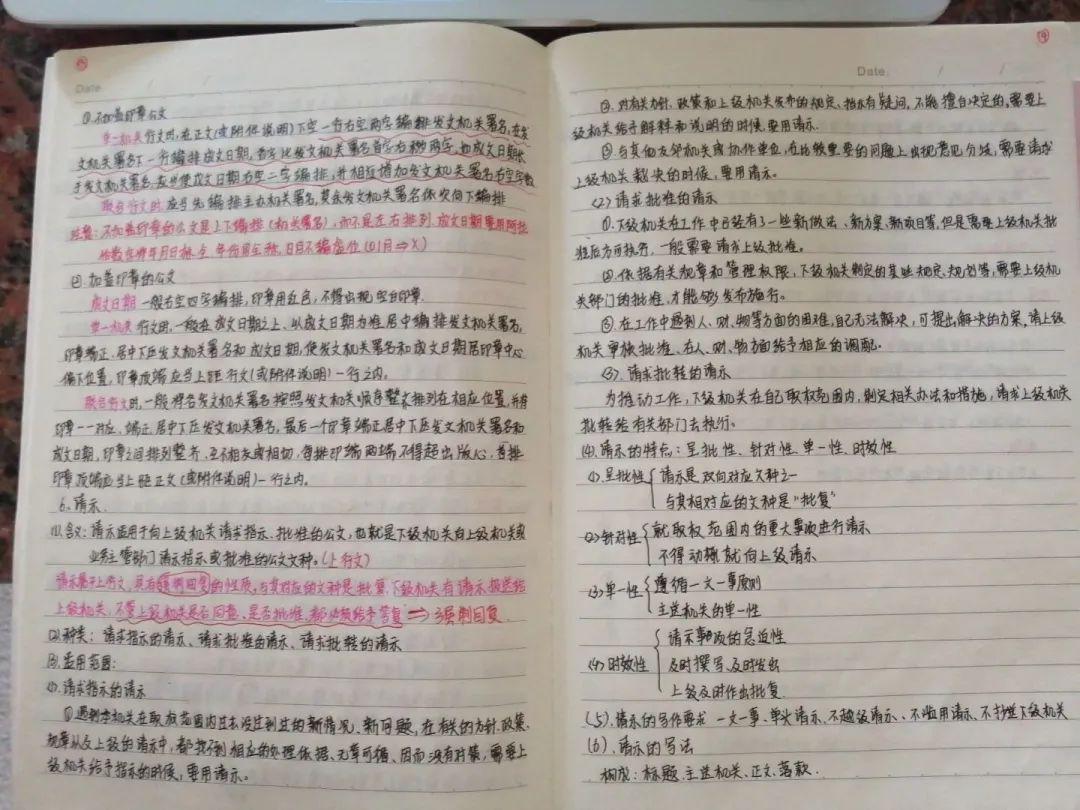 Date / /
①.不加盖印章公文
单一机关行文时,在正文(或附件说明)下空一行右空两字编排发文机关署名,在发
文机关署名下一行编排成文日期,首字比发文机关署名首字右移两字,如成文日期长
于发文机关署名,应当使成文日期右空二字编排,并相应增加发文机关署名右空字数
联合行文时,应当先编排主办机关署名,其余发文机关署名依次向下编排
注意:不加盖印章的公文是上下编排(机关署名),而不是左右排列.成文日期要用阿拉
伯数字将年月日标全,年份用全称,日月不编虚位(01月⇒X)
②.加盖印章的公文
成文日期一般右空四字编排,印章用红色,不得出现空白印章.
单一机关行文时,一般在成文日期之上、以成文日期为准居中编排发文机关署名,
印章端正、居中下压发文机关署名和成文日期,使发文机关署名和成文日期居印章中心
偏下位置,印章顶端应当上距行文(或附件说明)一行之内。
联合行文时,一般将各发文机关署名按照发文机关顺序整齐排列在相应位置,并将
印章一一对应、端正、居中下压发文机关署名,最后一个印章端正居中下压发文机关署名和
成文日期,印章之间排列整齐、互不相交或相切,每排印章两端不得超出版心,首排
印章顶端应当上距正文(或附件说明)一行之内。
6、请示
(1).含义:请示适用于向上级机关请求指示、批准的公文,也就是下级机关向上级机关或
业务主管部门请示指示或批准的公文文种。(上行文)
请示属于上行文,具有强制回复的性质,与其对应的文种是批复.下级机关有请示报送给
上级机关,不管上级机关是否同意、是否批准,都必须给予答复⇒强制回复
(2).种类:请求指示的请示、请求批准的请示、请求批转的请示
(3).适用范围:
(1).请求指示的请示
①遇到本机关在职权范围内且未没过到过的新情况、新问题,在有关的方针、政策、
规章以及上级的请示中,都找不到相应的处理依据、无章可循、因而没有对策,需要上
级机关给予指示的时候,要用请示。
Date: / /
②.对有关方针、政策和上级机关发布的规定、指示有疑问,不能擅自决定的,需要上
级机关给予解释和说明的时候,要用请示.
③与其他友邻机关或协作单位,在比较重要的问题上出现意见分歧,需要请求
上级机关裁决的时候,要用请示。
(2)请求批准的请示
①.下级机关在工作中已经有了一些新做法、新方案、新项目等,但是需要上级机关批
准后方可执行,一般需要请求上级批准。
②.依据有关规章和管理权限,下级机关制定的某些规定、规划等,需要上级机
关部门的批准,才能够发布施行。
③.在工作中遇到人、财、物等方面的困难,自己无法解决,可提出解决的方案,请上级
机关审核批准、在人、财、物方面给予相应的调配.
(3).请求批转的请示
为推动工作,下级机关在自己职权范围内,制定相关办法和措施,请求上级机关
批转给有关部门去执行。
(4).请示的特点:呈批性、针对性、单一性、时效性
(1).呈批性 请示是双向对应文种之一
与其相对应的文种是“批复”
(2)针对性 就职权范围内的重大事项进行请示
不得动辄就向上级请示
(3).单一性 遵循一文一事原则
主送机关的单一性
(4)时效性 请示事项的急迫性
及时撰写、及时发出
上级及时作出批复.
(5).请示的写作要求 一文一事、单头请示、不越级请示、不滥用请示、不抄送下级机关
(6).请示的写法
构成:标题、主送机关、正文、落款.